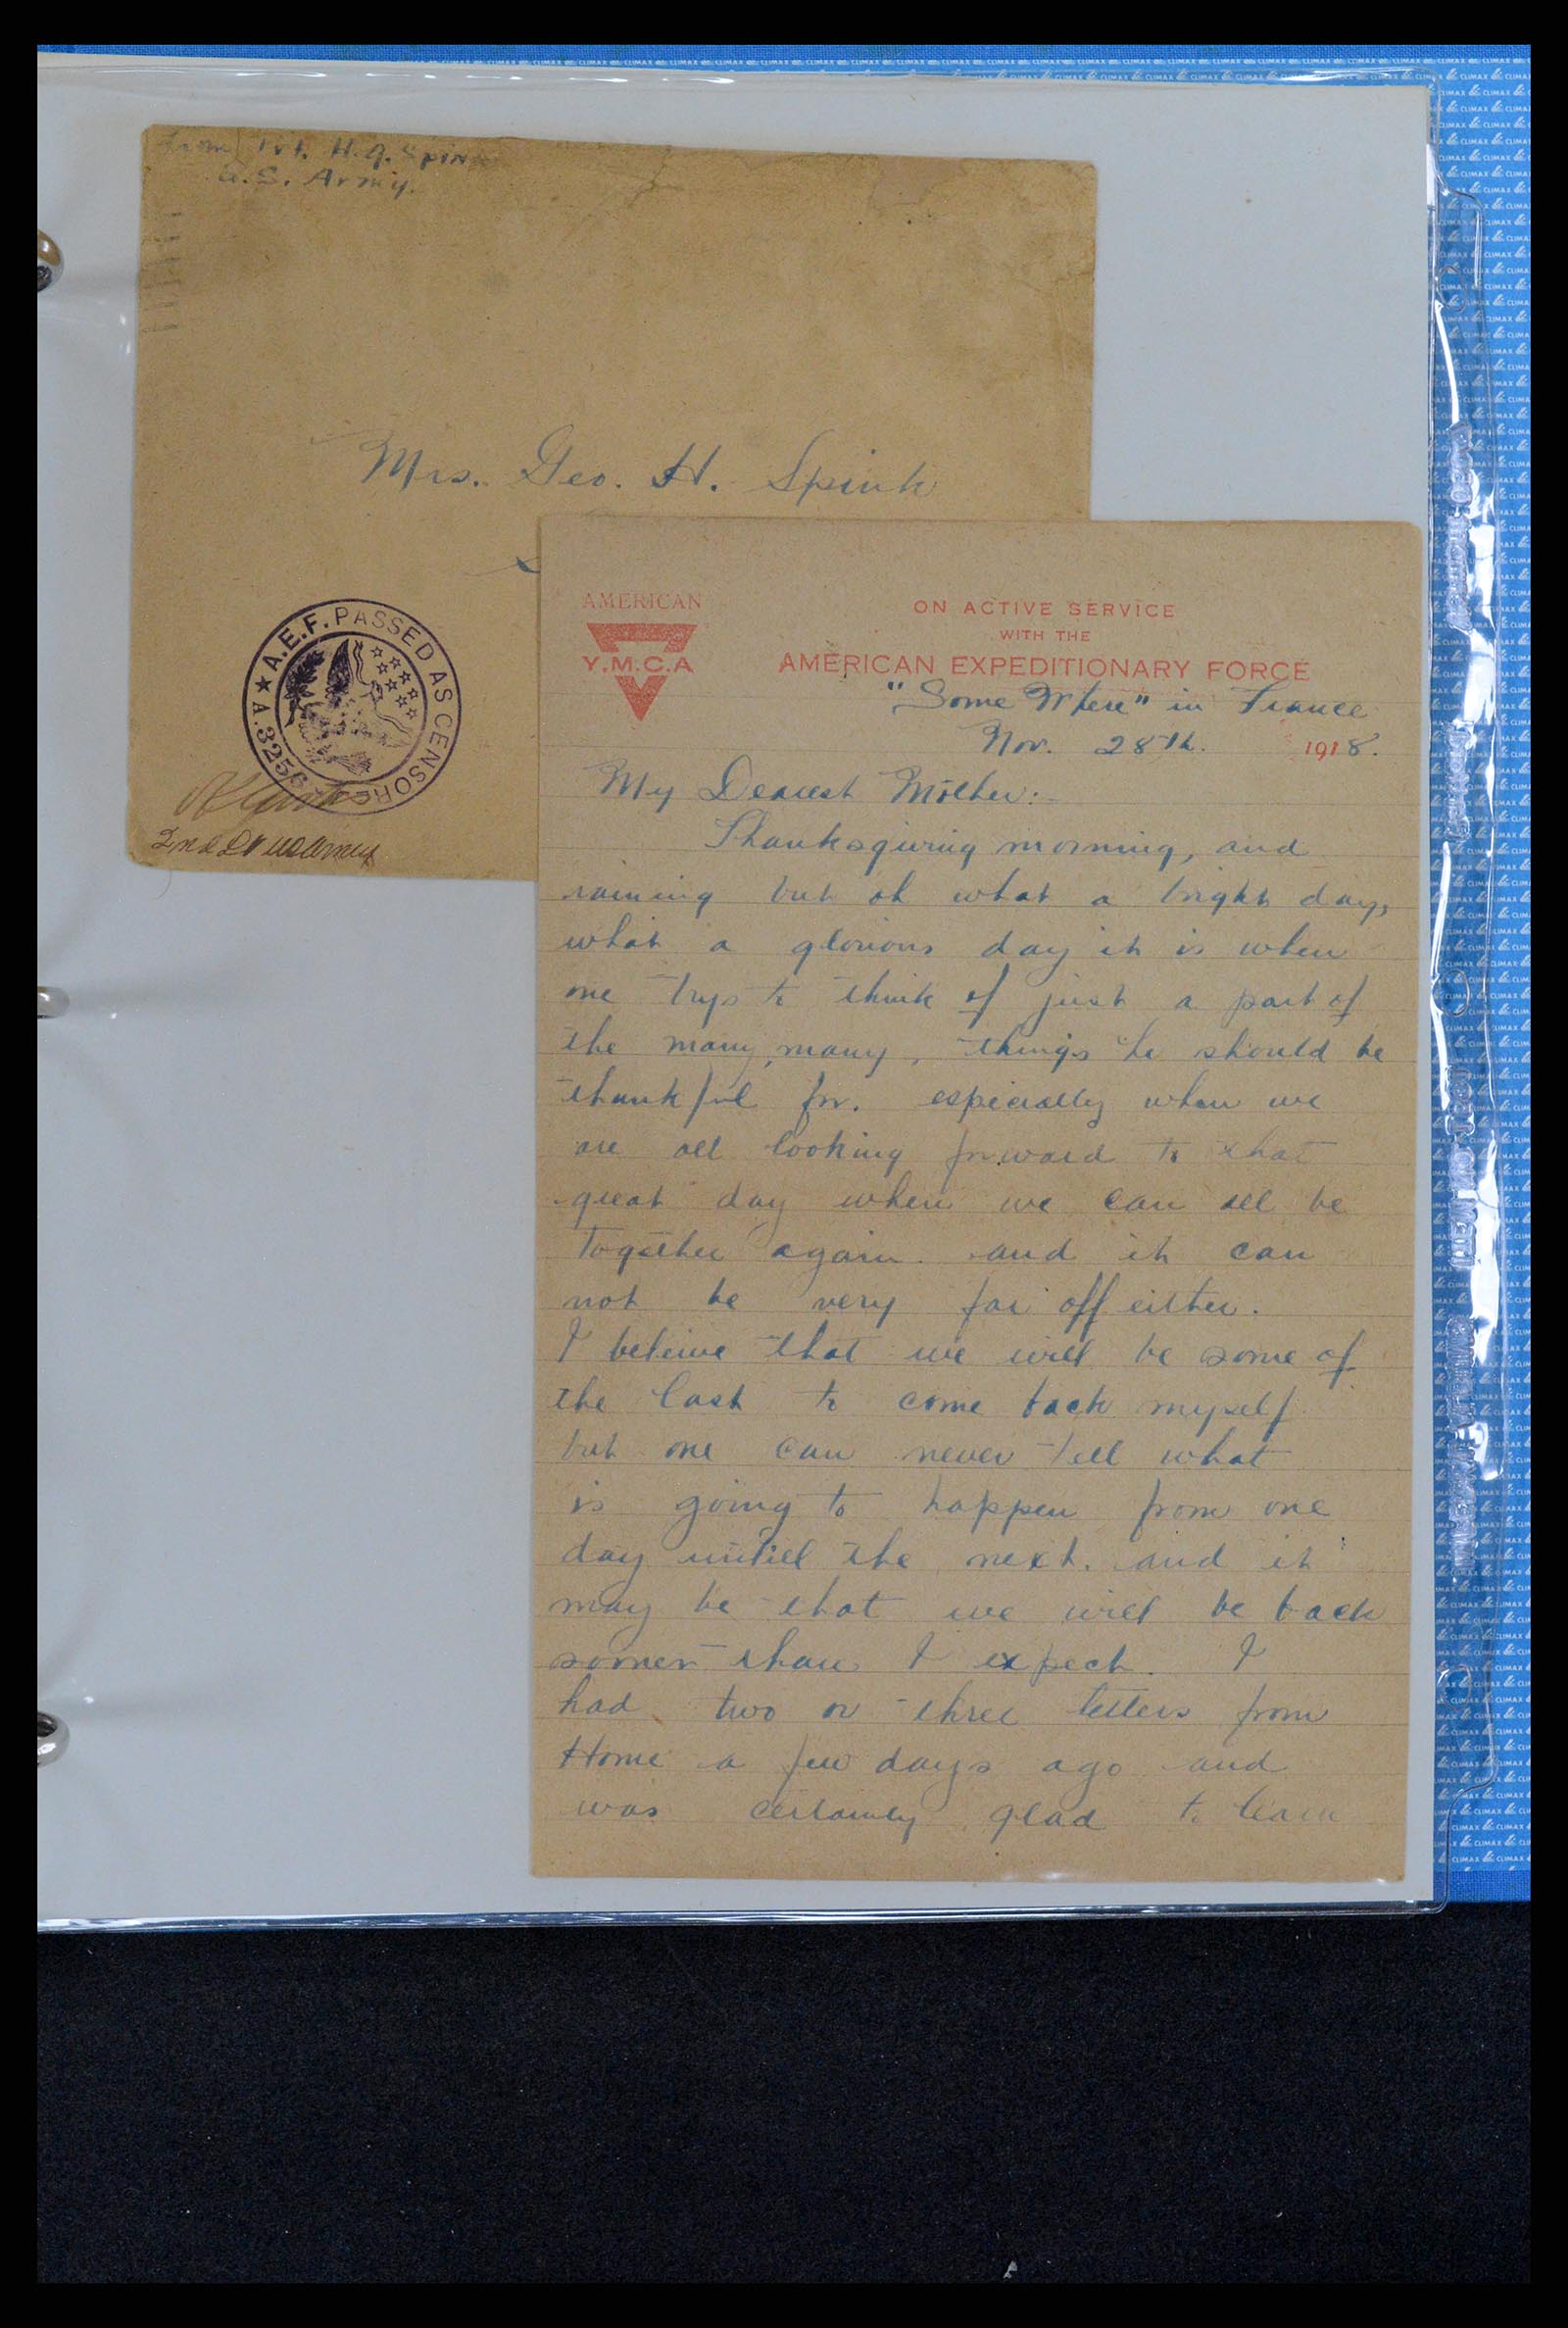 From Pvt. H. J. Spink
U.S. Army.
Mrs. Geo. H. Spink
★ A.E.F. PASSED AS CENSORED A.3256
2nd Lt US Army
AMERICAN
Y.M.C.A
ON ACTIVE SERVICE
WITH THE
AMERICAN EXPEDITIONARY FORCE
"Some Where" in France
Nov. 28th. 1918.
My Dearest Mother:-
Thanksgiving morning, and
raining but oh what a bright day,
what a glorious day it is when
one trys to think of just a part of
the many, many, things he should be
thankful for. especially when we
are all looking forward to that
great day when we can all be
together again. and it can
not be very far off either.
I beleive that we will be some of
the last to come back myself
but one can never tell what
is going to happen from one
day untill the next. and it
may be that we will be back
sooner than I expect. I
had two or three letters from
Home a few days ago and
was certainly glad to learn